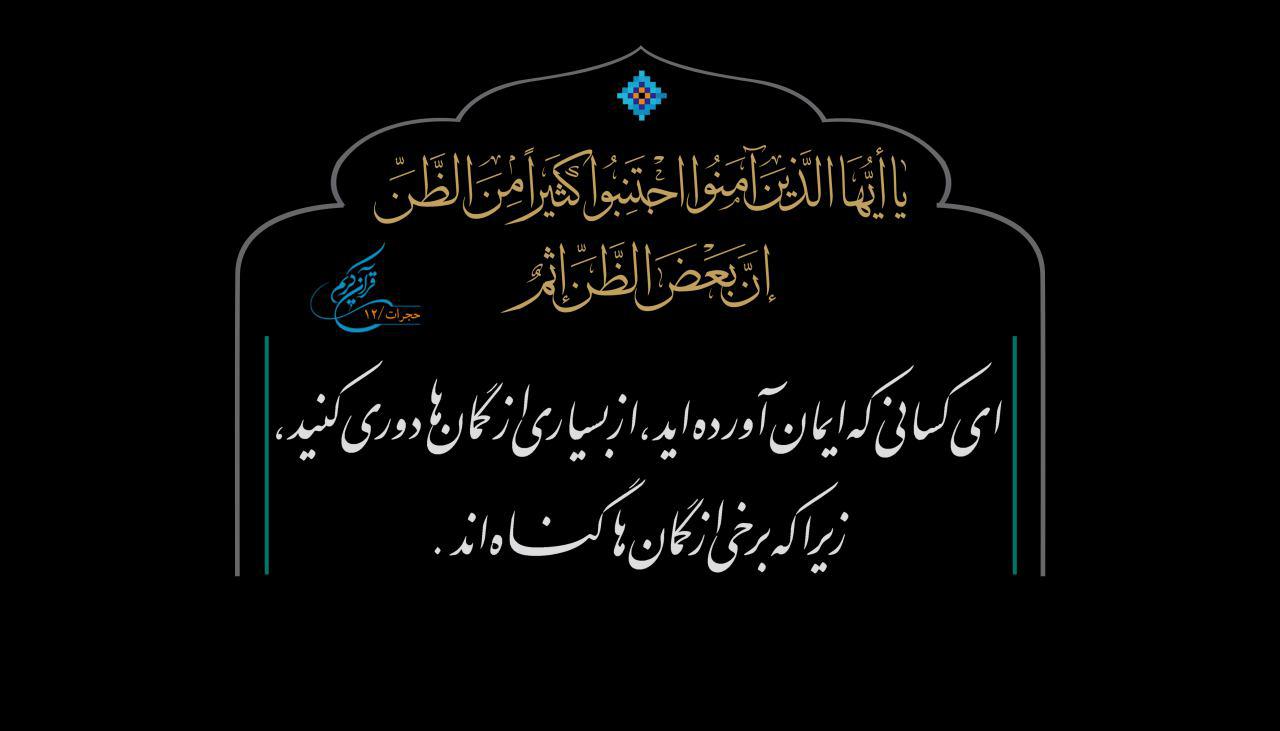 يَا أَيُّهَا الَّذِينَ آمَنُوا اجْتَنِبُوا كَثِيرًا مِنَ الظَّنِّ
إِنَّ بَعْضَ الظَّنِّ إِثْمٌ
قرآن کریم
حجرات/۱۲
ای کسانی که ایمان آورده اید، از بسیاری از گمان ها دوری کنید،
زیرا که برخی از گمان ها گناه اند .